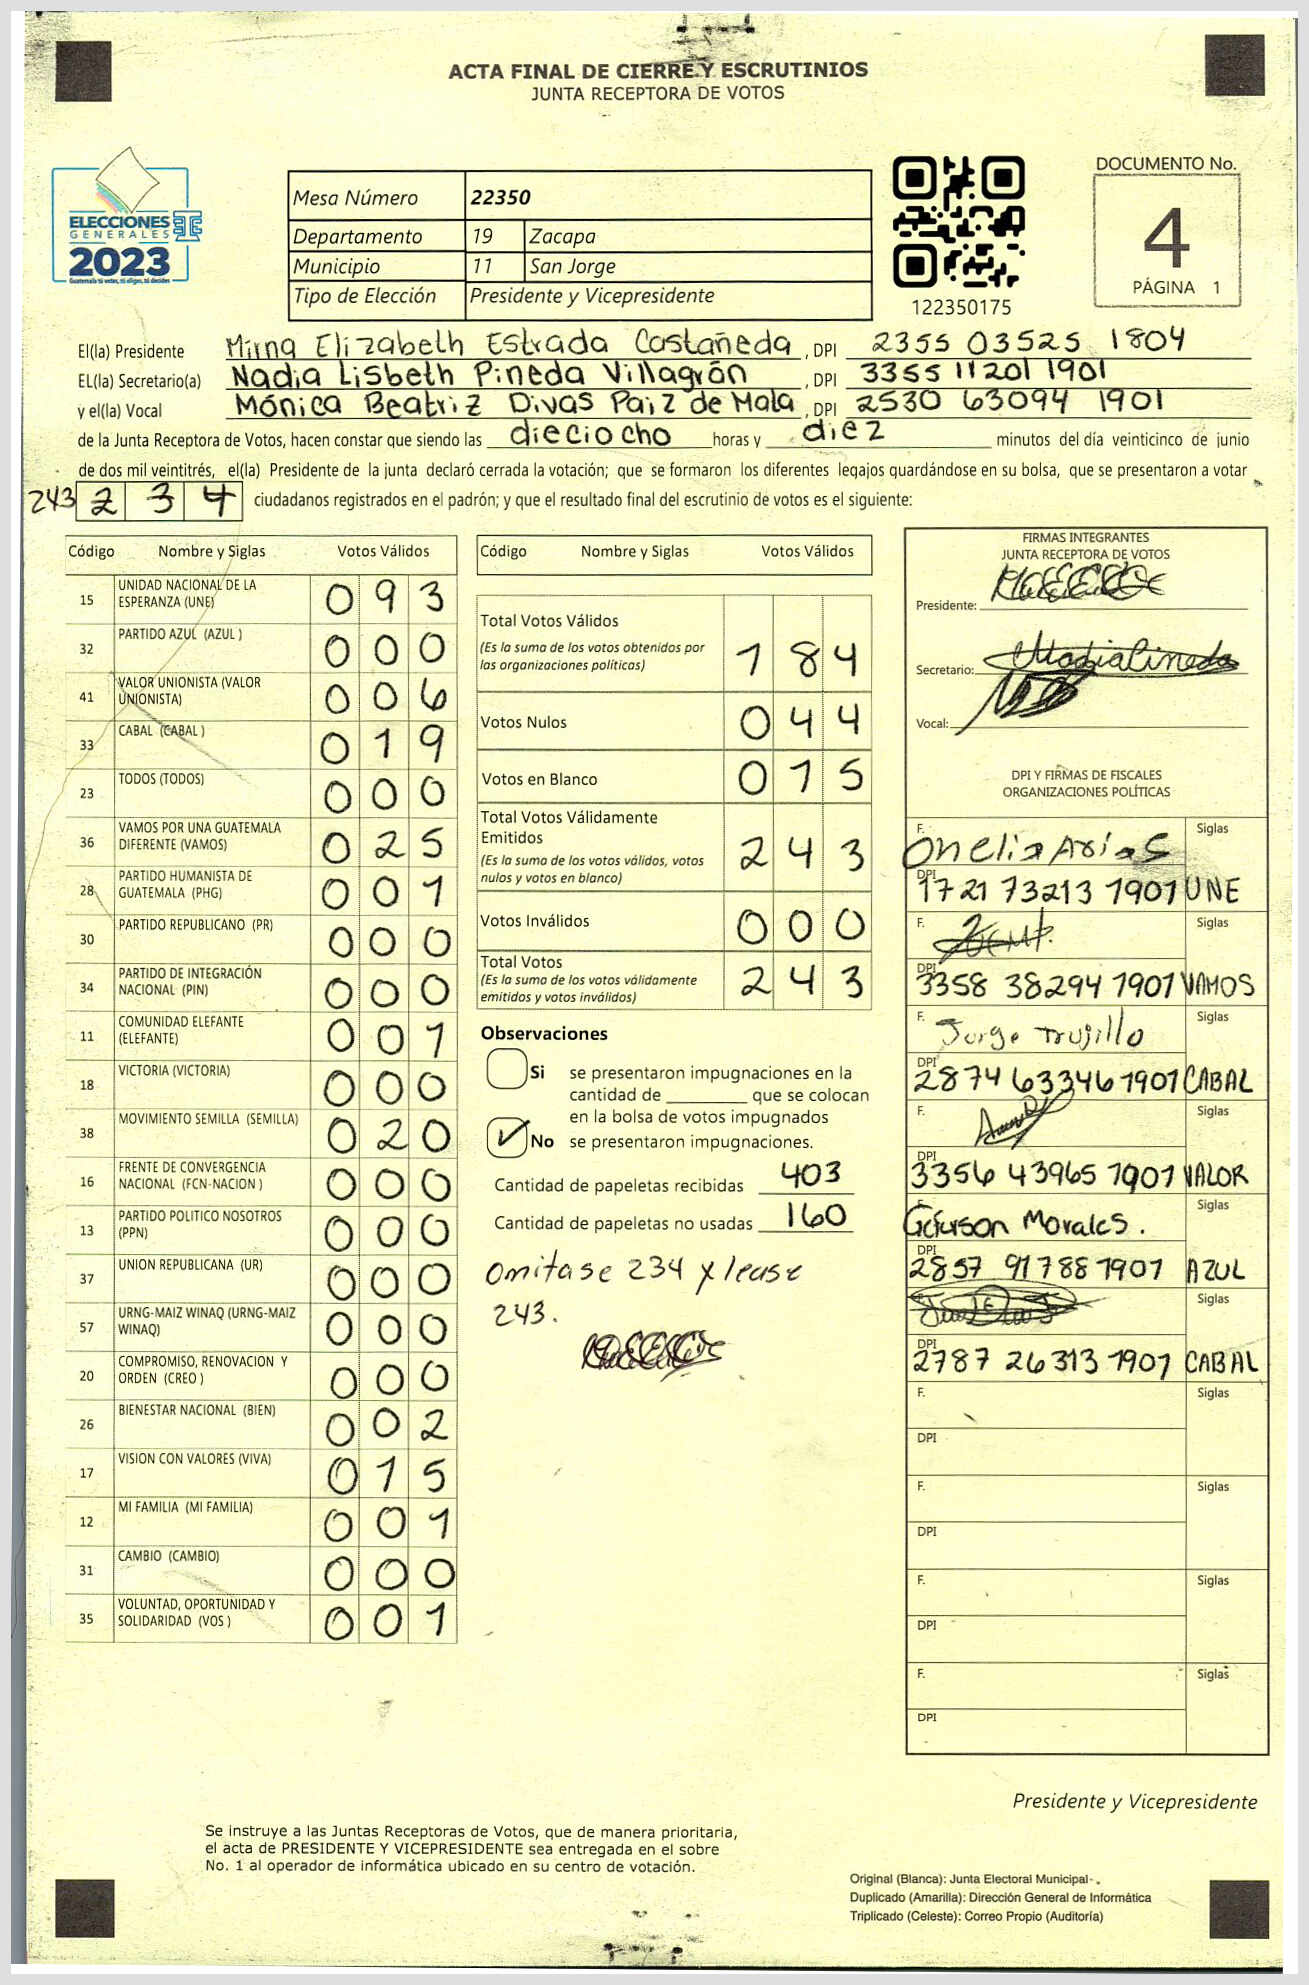 ACTA FINAL DE CIERRE Y ESCRUTINIOS
JUNTA RECEPTORA DE VOTOS
ELECCIONES
GENERALES
2023
Guatemala tú votas, tú eliges, tú decides
Mesa Número 22350
Departamento 19 Zacapa
Municipio 11 San Jorge
Tipo de Elección Presidente y Vicepresidente
122350175
DOCUMENTO No.
4
PÁGINA 1
El(la) Presidente Mirna Elizabeth Estrada Castañeda , DPI 2355 03525 1804
EL(la) Secretario(a) Nadia Lisbeth Pineda Villagrón , DPI 3355 11201 1901
y el(la) Vocal Mónica Beatriz Divas Paiz de Mala , DPI 2530 63094 1901
de la Junta Receptora de Votos, hacen constar que siendo las dieciocho horas y diez minutos del día veinticinco de junio
de dos mil veintitrés, el(la) Presidente de la junta declaró cerrada la votación; que se formaron los diferentes legajos quardándose en su bolsa, que se presentaron a votar
243 2 3 4 ciudadanos registrados en el padrón; y que el resultado final del escrutinio de votos es el siguiente:
Código Nombre y Siglas Votos Válidos
15 UNIDAD NACIONAL DE LA ESPERANZA (UNE) 0 9 3
32 PARTIDO AZUL (AZUL ) 0 0 0
41 VALOR UNIONISTA (VALOR UNIONISTA) 0 0 6
33 CABAL (CABAL ) 0 1 9
23 TODOS (TODOS) 0 0 0
36 VAMOS POR UNA GUATEMALA DIFERENTE (VAMOS) 0 2 5
28 PARTIDO HUMANISTA DE GUATEMALA (PHG) 0 0 1
30 PARTIDO REPUBLICANO (PR) 0 0 0
34 PARTIDO DE INTEGRACIÓN NACIONAL (PIN) 0 0 0
11 COMUNIDAD ELEFANTE (ELEFANTE) 0 0 1
18 VICTORIA (VICTORIA) 0 0 0
38 MOVIMIENTO SEMILLA (SEMILLA) 0 2 0
16 FRENTE DE CONVERGENCIA NACIONAL (FCN-NACION ) 0 0 0
13 PARTIDO POLITICO NOSOTROS (PPN) 0 0 0
37 UNION REPUBLICANA (UR) 0 0 0
57 URNG-MAIZ WINAQ (URNG-MAIZ WINAQ) 0 0 0
20 COMPROMISO, RENOVACION Y ORDEN (CREO ) 0 0 0
26 BIENESTAR NACIONAL (BIEN) 0 0 2
17 VISION CON VALORES (VIVA) 0 1 5
12 MI FAMILIA (MI FAMILIA) 0 0 1
31 CAMBIO (CAMBIO) 0 0 0
35 VOLUNTAD, OPORTUNIDAD Y SOLIDARIDAD (VOS ) 0 0 1
Código Nombre y Siglas Votos Válidos
Total Votos Válidos
(Es la suma de los votos obtenidos por las organizaciones políticas) 1 8 4
Votos Nulos 0 4 4
Votos en Blanco 0 1 5
Total Votos Válidamente Emitidos
(Es la suma de los votos válidos, votos nulos y votos en blanco) 2 4 3
Votos Inválidos 0 0 0
Total Votos
(Es la suma de los votos válidamente emitidos y votos inválidos) 2 4 3
Observaciones
Si se presentaron impugnaciones en la
cantidad de ________ que se colocan
en la bolsa de votos impugnados
No se presentaron impugnaciones.
Cantidad de papeletas recibidas 403
Cantidad de papeletas no usadas 160
Omitase 234 y lease
243.
FIRMAS INTEGRANTES
JUNTA RECEPTORA DE VOTOS
Presidente:
Secretario: Nadia Pineda
Vocal:
DPI Y FIRMAS DE FISCALES
ORGANIZACIONES POLÍTICAS
F. Onelia Arias Siglas
DPI 1721 73213 1901 UNE
F. Siglas
DPI 3358 38294 1901 VAMOS
F. Jorge Trujillo Siglas
DPI 2874 63346 1901 CABAL
F. Siglas
DPI 3356 43965 1901 VALOR
F. Geferson Morales. Siglas
DPI 2857 91788 1901 AZUL
F. Siglas
DPI 2787 26313 1901 CABAL
F. Siglas
DPI
F. Siglas
DPI
F. Siglas
DPI
F. Siglas
DPI
Presidente y Vicepresidente
Se instruye a las Juntas Receptoras de Votos, que de manera prioritaria,
el acta de PRESIDENTE Y VICEPRESIDENTE sea entregada en el sobre
No. 1 al operador de informática ubicado en su centro de votación.
Original (Blanca): Junta Electoral Municipal-
Duplicado (Amarilla): Dirección General de Informática
Triplicado (Celeste): Correo Propio (Auditoría)